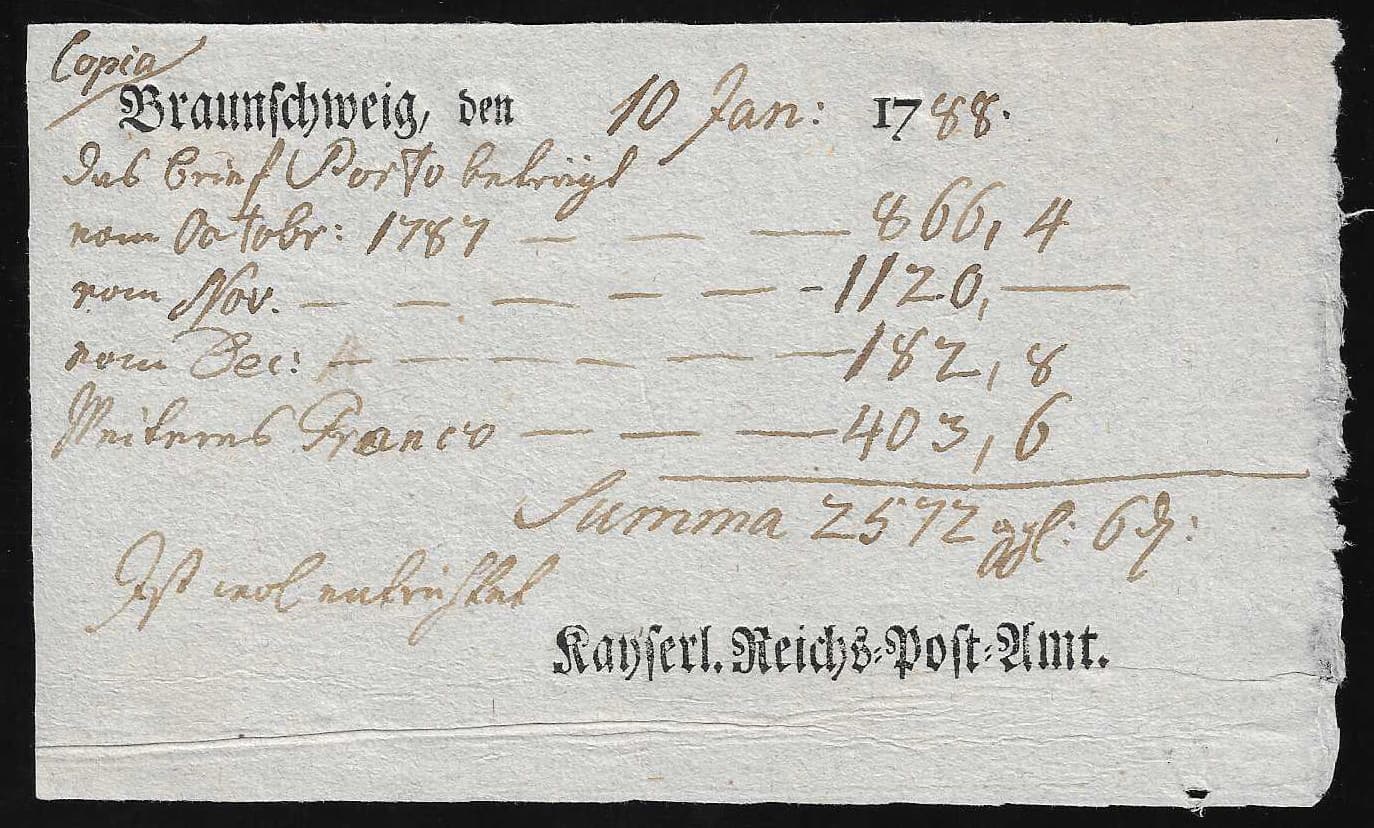 Copia
Braunschweig, den 10 Jan: 1788.
das Brief Porto beträgt
vom Octobr: 1787 — — — 866, 4
vom Nov. — — — — — - 1120, —
vom Dec: — — — — — — 182, 8
Weiteres Franco — — — 403, 6
Summa 2572 ggl: 6 d:
Ist wol entrichtet
Kayserl. Reichs-Post-Amt.